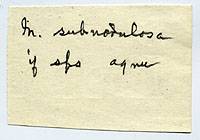 M. subnodulosa
if sps agree